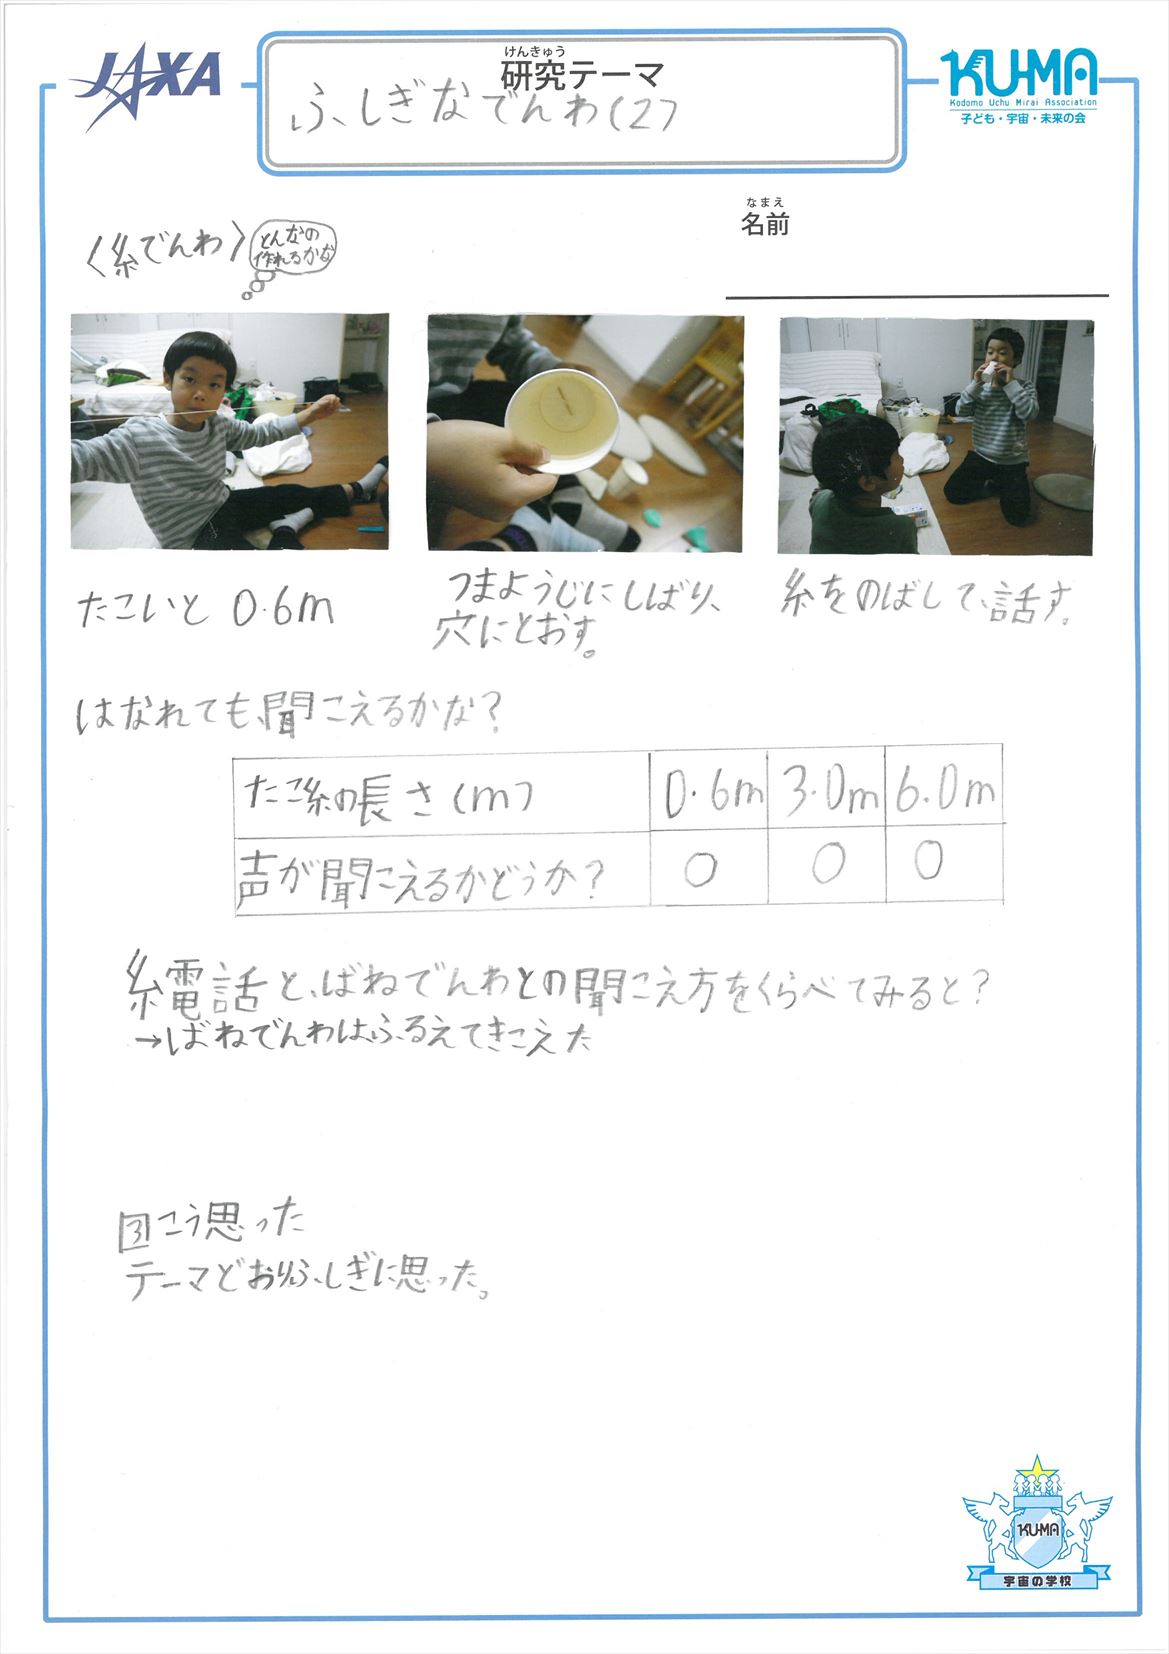 JAXA
けんきゅう
研究テーマ
ふしぎなでんわ(2)
KU-MA
Kodomo Uchu Mirai Association
子ども・宇宙・未来の会
なまえ
名前
〈糸でんわ〉
どんなの
作れるかな
たこいと 0.6m
つまようじにしばり、
穴にとおす。
糸をのばして、話す。
はなれても、聞こえるかな?
たこ糸の長さ(m) 0.6m 3.0m 6.0m
声が聞こえるかどうか? ○ ○ ○
糸電話と、ばねでんわとの聞こえ方をくらべてみると?
→ばねでんわは、ふるえてきこえた
3 こう思った
テーマどおりふしぎに思った。
KU-MA
宇宙の学校